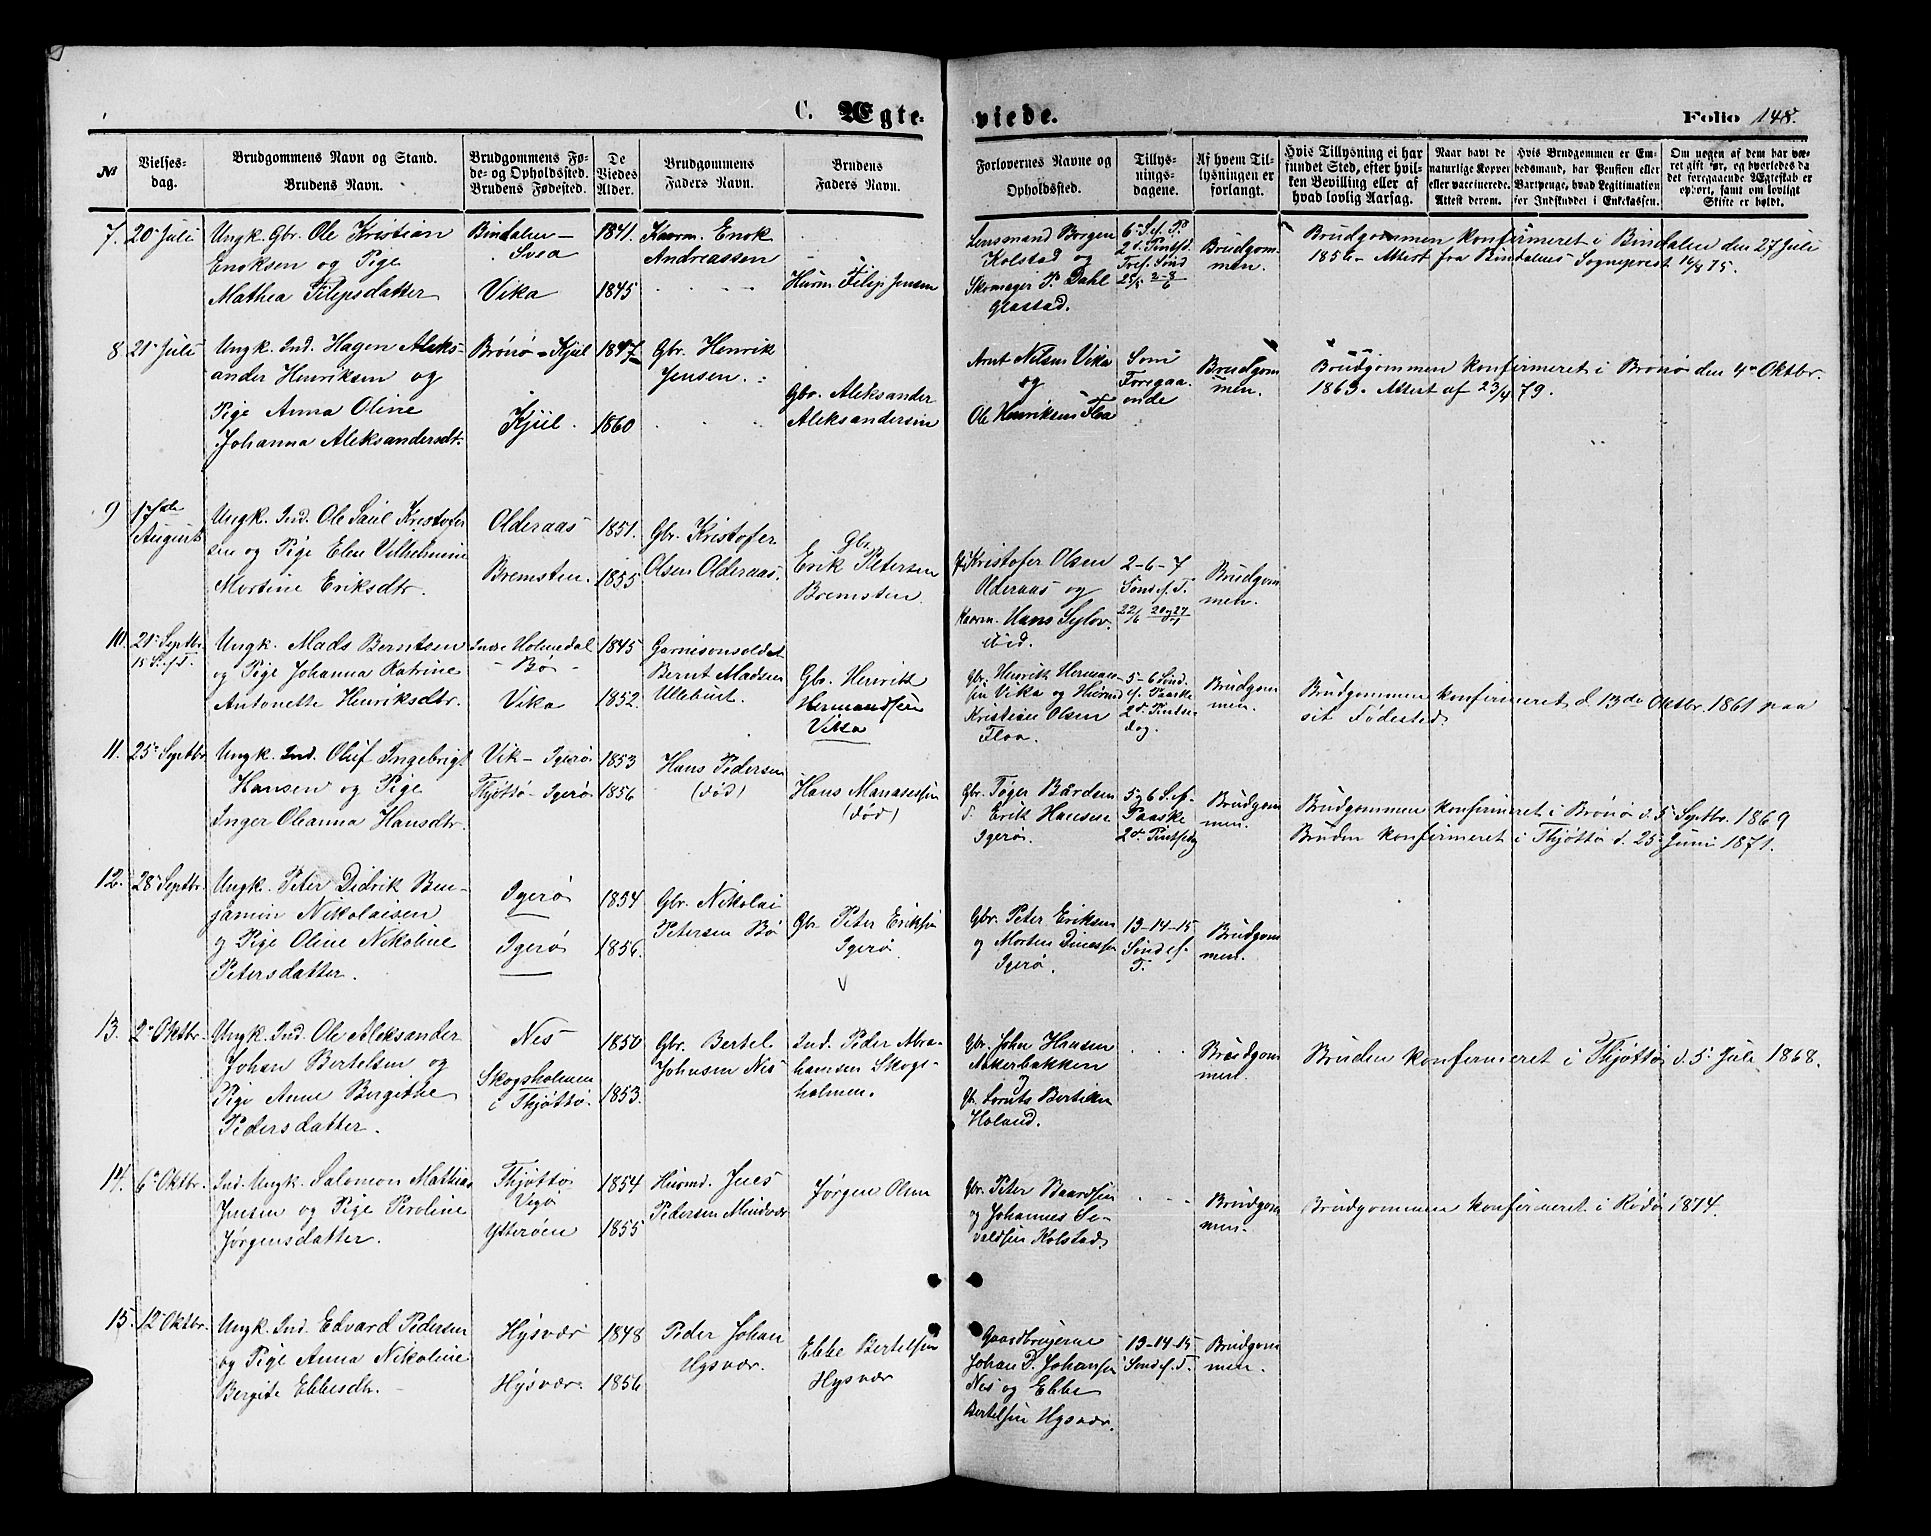 C. Ægteviede.
Folio 148.
№
Vielsesdag.
Brudgommens Navn og Stand.
Brudens Navn.
Brudgommens Føde- og Opholdssted.
Brudens Fødested.
De Viedes Alder.
Brudgommens Faders Navn.
Brudens Faders Navn.
Forlovernes Navne og Opholdssted.
Tillysningsdagene.
Af hvem Tillysningen er forlangt.
Hvis Tillysning ei har fundet Sted, efter hvilken Bevilling eller af hvad lovlig Aarsag.
Naar havt de naturlige Kopper eller vaccinerede. Attest derom.
Hvis Brudgommen er Embedsmand, har Pension eller Vartpenge, hvad Legitimation for Indskuddet i Enkekassen.
Om nogen af dem har været gift før, og hvorledes da det foregaaende Ægteskab er ophørt, samt om lovligt Skifte er holdt.
7. 20de Juli
Ungk. Gbr. Ole Kristian
Enoksen og Pige
Mathea Filipsdatter
Bindalen-
Svea
Vika
1841.
1845
Kaarm. Enok
Andreassen
Husm Filip Jensen
Lensmand Borgen
Kolstad og
Skomager P. Dahl
Grastad.
Brudgommen.
Brudgommen konfirmeret i Bindalen den 27 Juli
1856 - Attest fra Bindalens Sogneprest 16/8 75.
8 21de Juli
Ungk. Ind. Hagen Aleks-
ander Henriksen og
Pige Anna Oline
Johanna Aleksandersdt.
Brønø - Kjul
Kjul.
1847
1860
Gbr. Henrik
Jensen.
Gbr. Aleksander
Aleksandersen
Arnt Nilsen Vika
og
Ole Henriksen Floa
Som
Foregaa-
ende
Brudgom
men.
Brudgommen konfirmeret i Brønø den 4de Oktbr.
1863. Attest af 23/4 79.
9 17de
August
Ungk. Ind. Ole Saul Kristofer
sen og Pige Elen Vilhelmine
Mortine Eriksdtr.
Olderaas
Bremsten.
1851.
1855
Gbr. Kristofer
Olsen Olderaas.
Gbr.
Erik Petersen
Bremsten.
Kristofer Olsen
Olderaas og
Kaarm. Hans Sylov.
ibid.
2-6-7
Sønd ef. T.
Brudgom
men.
10. 21de Septbr.
15 S. f. T.
Ungk. Mads Berntsen
og Pige Johanna Katrine
Antonette Henriksdtr.
Indre Holmedal
- Bø -
Vika
1845
1852.
Garnisonsoldat
Bernt Madsen
Gbr. Henrik
Hermandsen
Vika
Gbr. Henrik Herman-
sen Vika og Husmd
Kristian Olsen
Floa.
5-6 Sønd.
ef. Paaske
2d. Pintse
dag.
Brudgom
men.
Brudgommen konfirmeret d. 13de Oktbr. 1861 paa
sit Fødested.
11. 25de Septbr
Ungk. Ind. Oluf Ingebrigt
Hansen og Pige
Inger Oleanna Hansdtr.
Vik - Igerø
Thjøttø - Igerø
1853
1856
Hans Pedersen
(død)
Hans Manassesen
(død)
Gbr. Tøger Bårdsen
Erik Hansen
Igerø.
5 og 6 S. ef.
Paaske
2d. Pintsedag
Brudgom
men.
Brudgommen konfirmeret i Brønø d. 5 Septbr. 1869
Bruden konfirmeret i Thjøttø d. 25de Juni 1871.
12. 28de Septbr.
Ungk. Peter Didrik Ben-
jamin Nikolaisen
og Pige Oline Nikoline
Petersdatter.
Igerø
Igerø
1854
1856.
Gbr. Nikolai
Petersen Bø
Gbr Peter Eriksen
Igerø.
Gbr. Peter Eriksen
og Morten Dinessen
Igerø.
13-14-15
Sønd ef.
T.
Brudgom
men.
13. 2den Oktbr.
Ungk. Ind. Ole Aleksander
Johan Bertelsen og
Pige Anne Bergithe
Pedersdatter.
Nes
Skogsholmen
i Thjøttø.
1850
1853.
Gbr. Bertel
Johnsen Nes
Ind. Peder Abra-
hamsen Skogs-
holmen.
Gbr. John Hansen
Akerbakken
og
Bertilsen
Høland.
Brudgom
men.
Bruden konfirmeret i Thjøttø d. 5 Juli 1868.
14. 6te Oktbr.
Ind. Ungk. Salomon Mathias
Jensen og Pige Peroline
Jørgensdatter.
Thjøttø
Vegø
Ytterøen
1854
1855
Husmd. Jens
Pedersen Mindvær
Jørgen Olsen
Gbr. Peter Baardsen
og Johannes Se-
valdsen Kolstad.
Brudgom
men.
Brudgommen konfirmeret i Rødø 1874.
15. 12te Oktbr.
Ungk. Ind. Edvard Pedersen
og Pige Anna Nikoline
Bergite Ebbesdtr.
Hysvær
Hysvær.
1848
1856
Peder Johan
Hysvær.
Ebbe Bertelsen
Hysvær
Gaardbrugerne
Johan D. Johansen
Nes og Ebbe
Bertelsen Hysvær.
13-14-15
Sønd ef. T.
Brudgom
men.